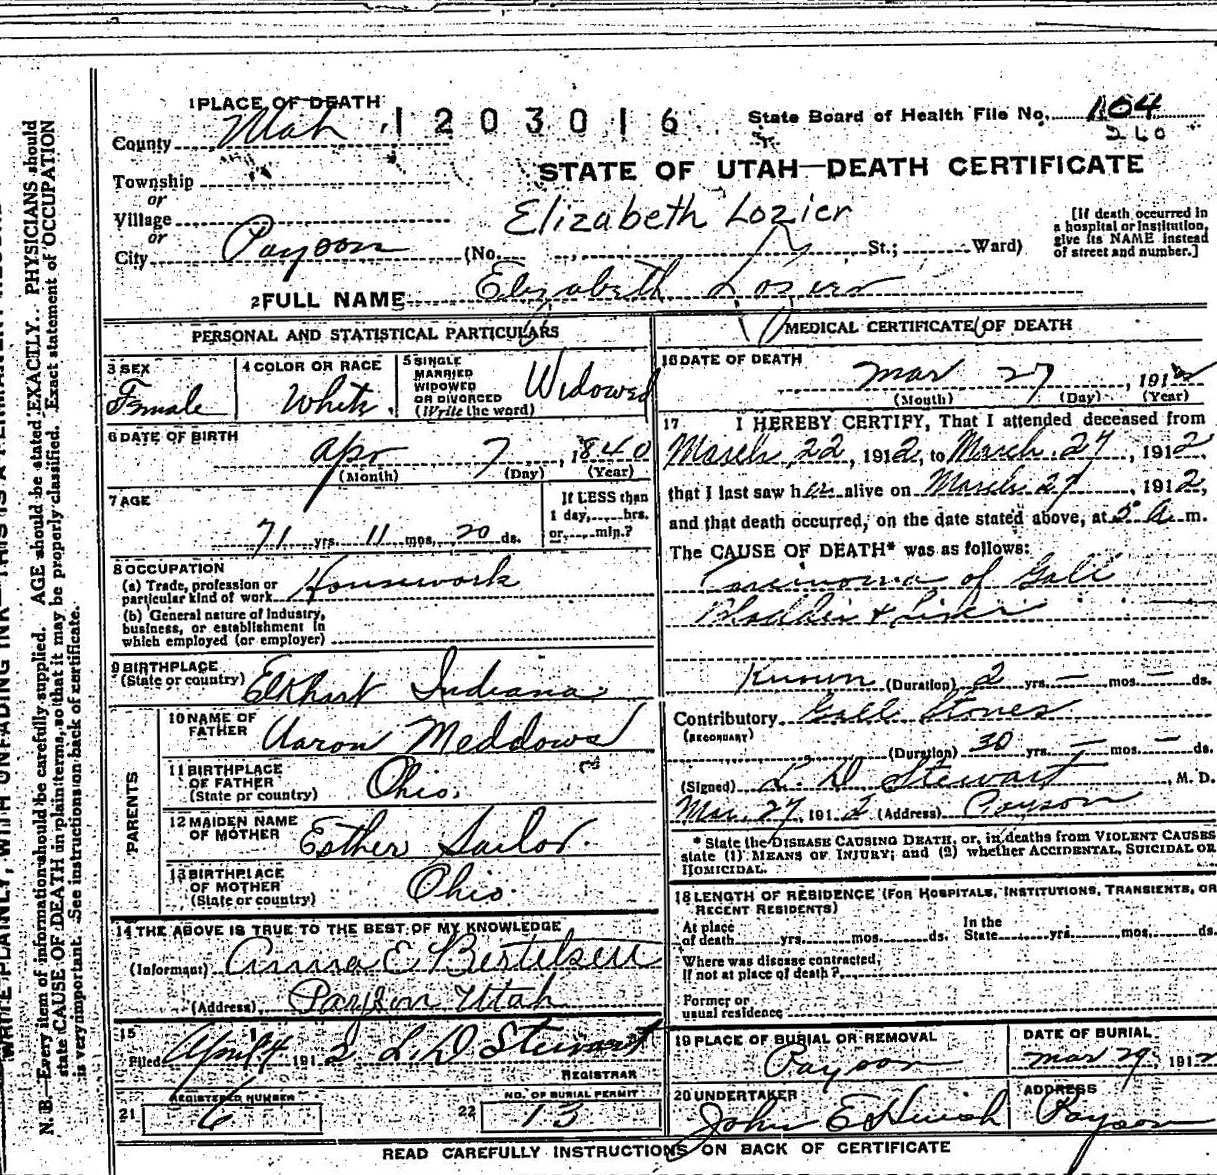 1 PLACE OF DEATH
1203016
State Board of Health File No. 104
260
County Utah
STATE OF UTAH—DEATH CERTIFICATE
Township
or
Village
or
City Payson (No. St.; Ward)
Elizabeth Lozier
[If death occurred in
a hospital or institution,
give its NAME instead
of street and number.]
2 FULL NAME Elizabeth Loziers
PERSONAL AND STATISTICAL PARTICULARS
3 SEX
Female
4 COLOR OR RACE
White
5 SINGLE
MARRIED
WIDOWED
OR DIVORCED
(Write the word)
Widowed
6 DATE OF BIRTH
Apr 7, 1840
(Month) (Day) (Year)
7 AGE
71 yrs. 11 mos. 20 ds.
If LESS than
1 day, hrs.
or min.?
8 OCCUPATION
(a) Trade, profession or
particular kind of work Housework
(b) General nature of industry,
business, or establishment in
which employed (or employer)
9 BIRTHPLACE
(State or country) Elkhart Indiana
PARENTS
10 NAME OF
FATHER Aaron Meddows
11 BIRTHPLACE
OF FATHER
(State or country) Ohio.
12 MAIDEN NAME
OF MOTHER Esther Sailor.
13 BIRTHPLACE
OF MOTHER
(State or country) Ohio
14 THE ABOVE IS TRUE TO THE BEST OF MY KNOWLEDGE
(Informant) Anna E Bertelsen
(Address) Payson Utah
15
Filed April 4 1912 L. D Stewart
REGISTRAR
REGISTERED NUMBER
21 6
NO. OF BURIAL PERMIT
22 13
MEDICAL CERTIFICATE OF DEATH
16 DATE OF DEATH
Mar 27, 1912
(Month) (Day) (Year)
17 I HEREBY CERTIFY, That I attended deceased from
March 22, 1912, to March 27, 1912,
that I last saw her alive on March 27, 1912,
and that death occurred, on the date stated above, at 5 A m.
The CAUSE OF DEATH* was as follows:
Carcinoma of Gall
Bladder & Liver
Known (Duration) 2 yrs. — mos. — ds.
Contributory Gall Stones
(SECONDARY)
(Duration) 30 yrs. — mos. — ds.
(Signed) L. D Stewart, M. D.
Mar. 27, 1912 (Address) Payson
* State the DISEASE CAUSING DEATH, or, in deaths from VIOLENT CAUSES
state (1) MEANS OF INJURY; and (2) whether ACCIDENTAL, SUICIDAL OR
HOMICIDAL.
18 LENGTH OF RESIDENCE (FOR HOSPITALS, INSTITUTIONS, TRANSIENTS, OR
RECENT RESIDENTS)
At place
of death yrs. mos. ds.
In the
State yrs. mos. ds.
Where was disease contracted,
If not at place of death?
Former or
usual residence
19 PLACE OF BURIAL OR REMOVAL
Payson
DATE OF BURIAL
Mar 29, 1912
20 UNDERTAKER
John E Huish
ADDRESS
Payson
READ CAREFULLY INSTRUCTIONS ON BACK OF CERTIFICATE
N. B.—Every item of information should be carefully supplied. AGE should be stated EXACTLY. PHYSICIANS should
state CAUSE OF DEATH in plain terms, so that it may be properly classified. Exact statement of OCCUPATION
is very important. See instructions on back of certificate.
WRITE PLAINLY, WITH UNFADING INK—THIS IS A PERMANENT RECORD